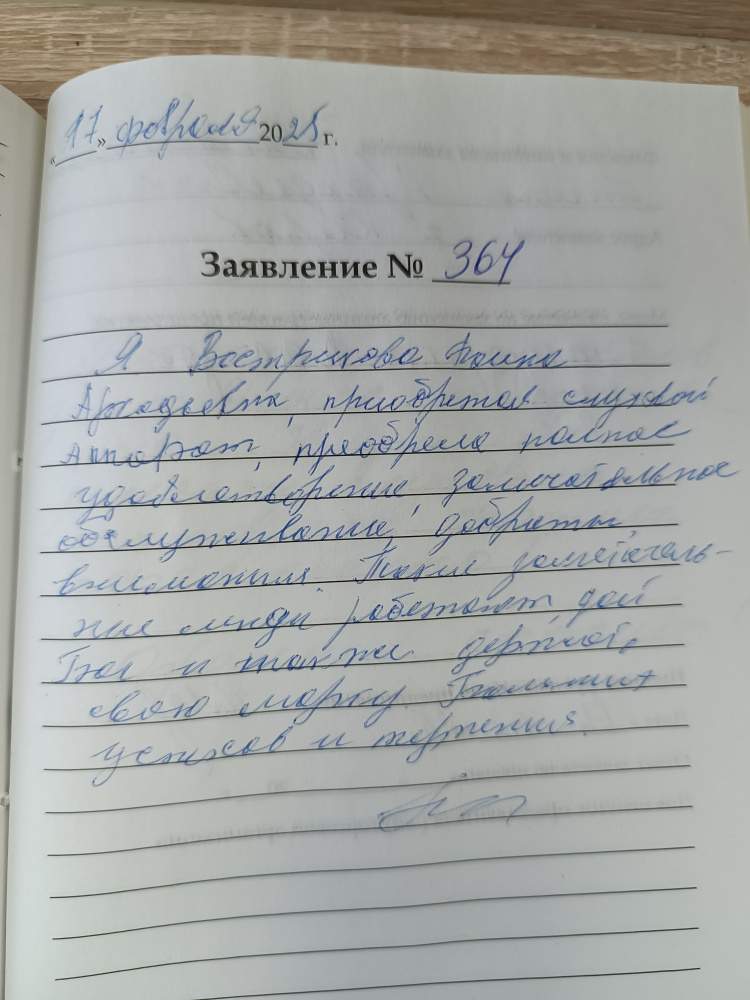 «17» февраля 2025 г.
Заявление № 364
Я Вострикова
Аркадьевна, приобретая слуховой
аппарат, приобрела полное
удовлетворение, замечательное
обслуживание, доброты,
внимания. Такие замечатель-
ные люди работают, дай
Бог и также держать
свою марку. Больших
успехов и терпения.